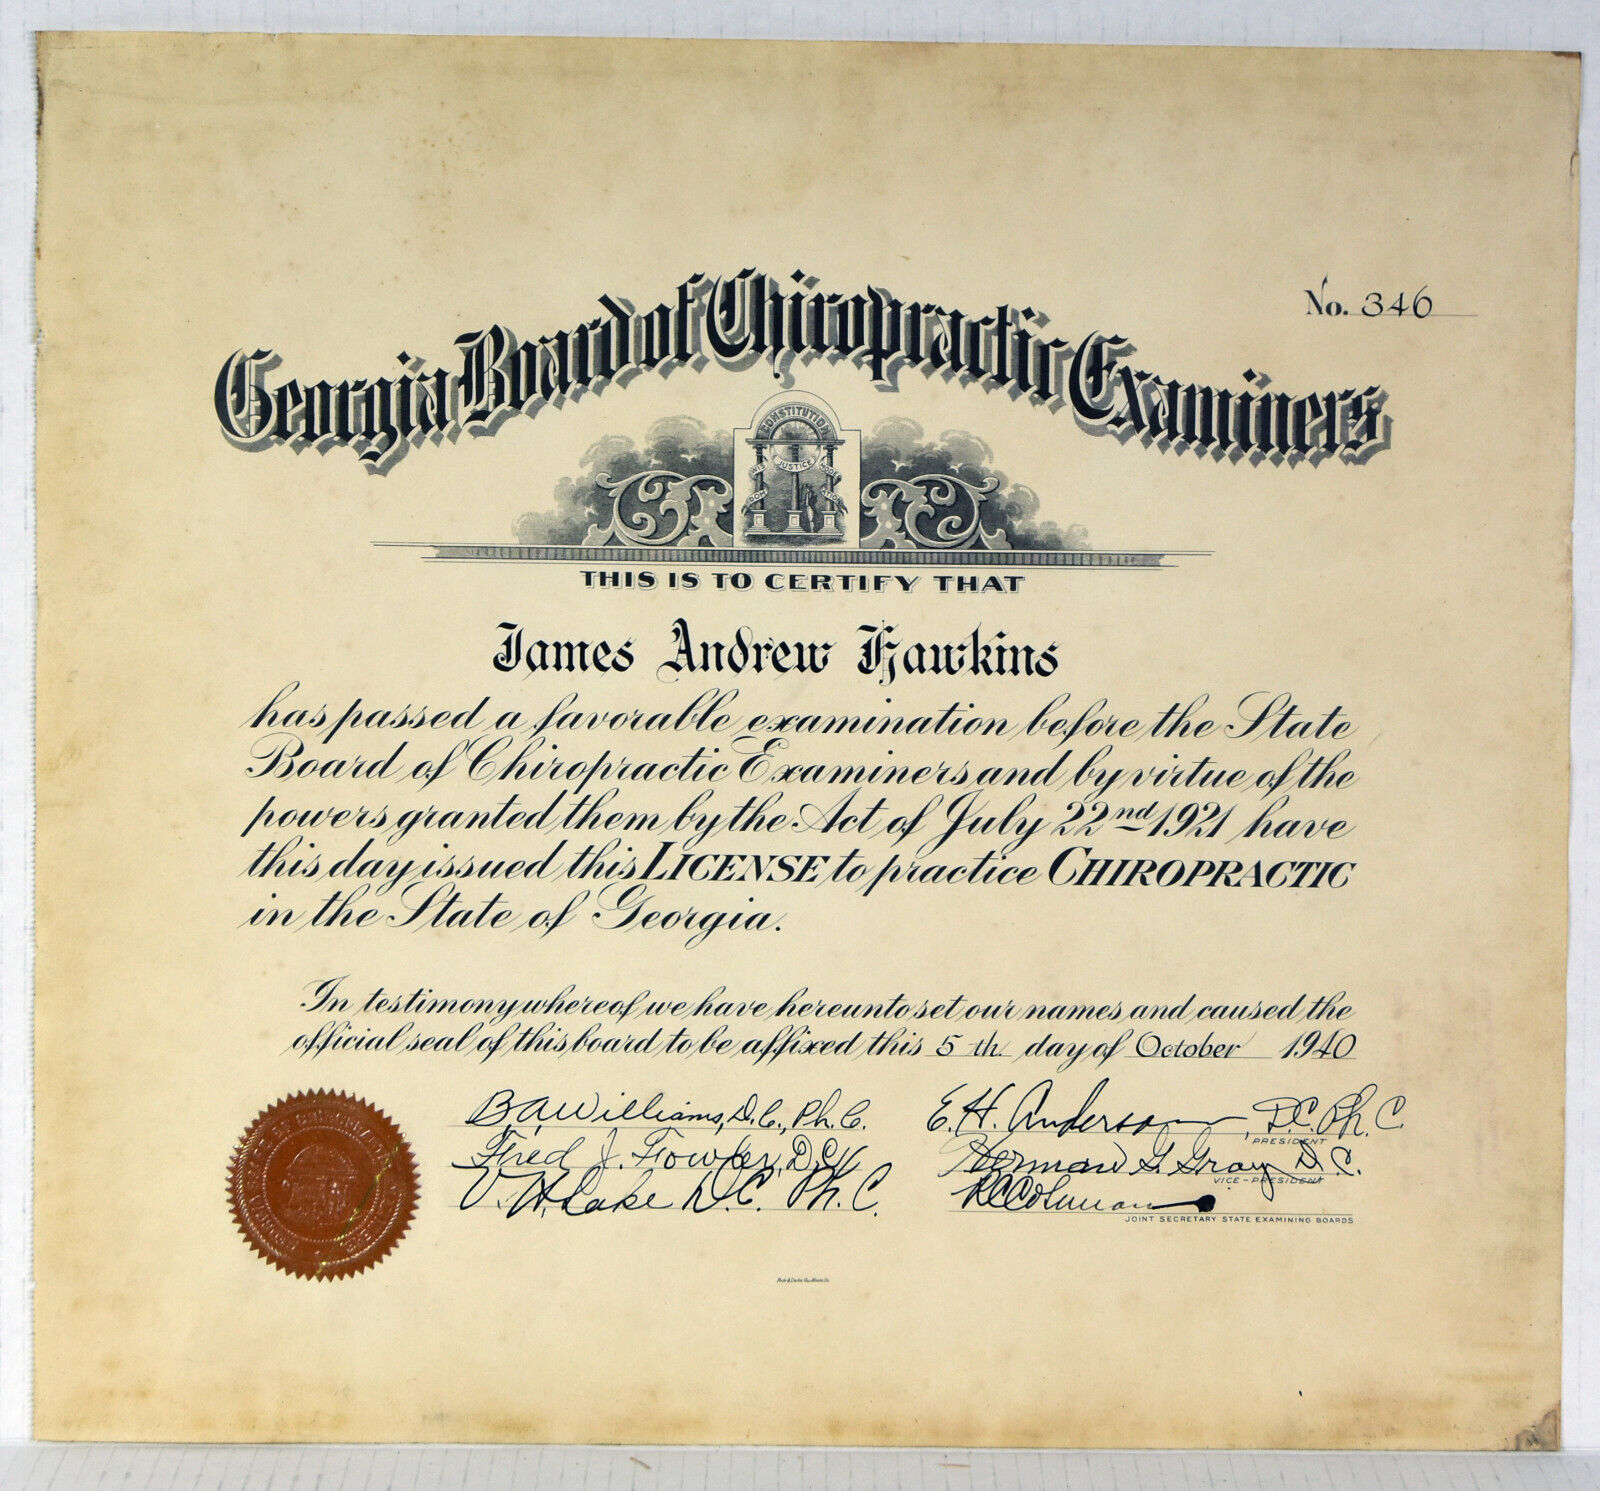 No. 346
Georgia Board of Chiropractic Examiners
CONSTITUTION
WISDOM JUSTICE MODERATION
THIS IS TO CERTIFY THAT
James Andrew Hawkins
has passed a favorable examination before the State
Board of Chiropractic Examiners and by virtue of the
powers granted them by the Act of July 22nd 1921 have
this day issued this LICENSE to practice CHIROPRACTIC
in the State of Georgia.
In testimony whereof we have hereunto set our names and caused the
official seal of this board to be affixed this 5 th. day of October 1940
B.A. Williams, D.C., Ph.C.
E. H. Anderson, D.C. Ph. C.
PRESIDENT
Fred J. Fowler, D.C.
Herman G. Gray D.C.
VICE-PRESIDENT
V. H. Lake D.C. Ph. C.
R C Coleman
JOINT SECRETARY STATE EXAMINING BOARDS